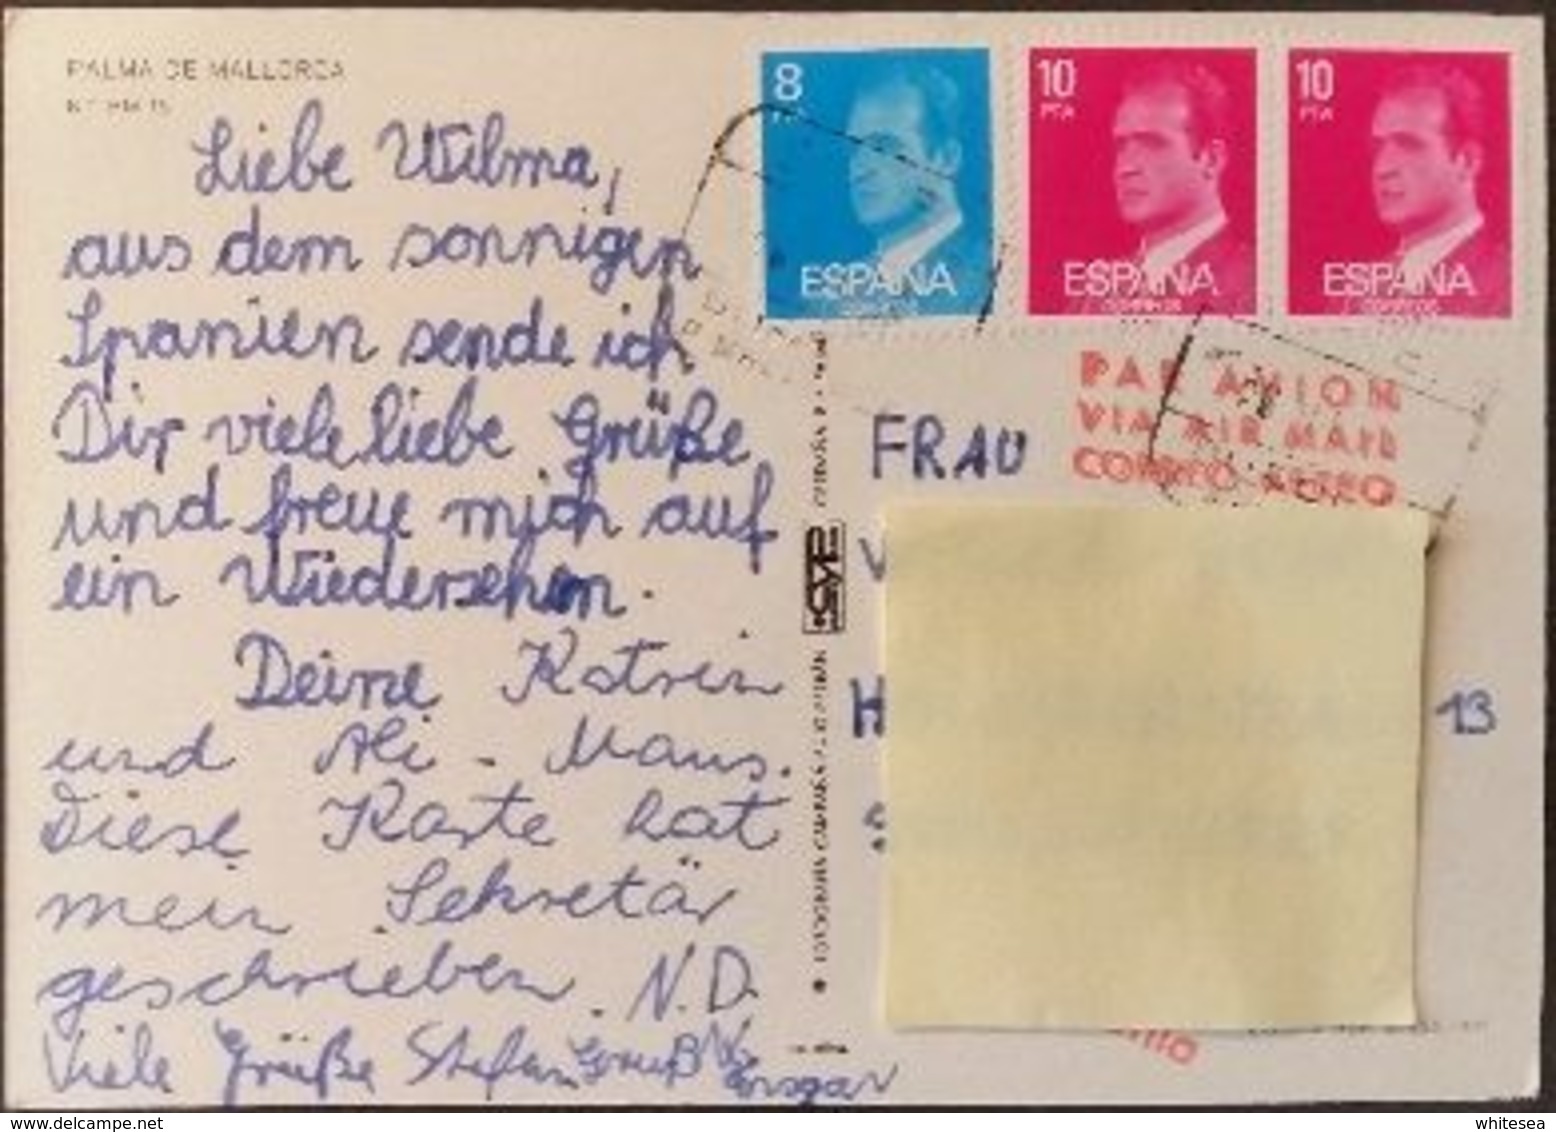 PALMA DE MALLORCA
Liebe Wilma,
aus dem sonnigen
Spanien sende ich
Dir viele liebe Grüße
und freue mich auf
ein Wiedersehen.
Deine Katrin
und Ali-Maus.
Diese Karte hat
mein Sekretär
geschrieben. N.D.
Viele Grüße Stefan Gruß
8
ESPAÑA
CORREOS
10
PTA
ESPAÑA
CORREOS
10
PTA
ESPAÑA
CORREOS
PAR AVION
VIA AIR MAIL
CORREO AEREO
FRAU
H
13
whitesea